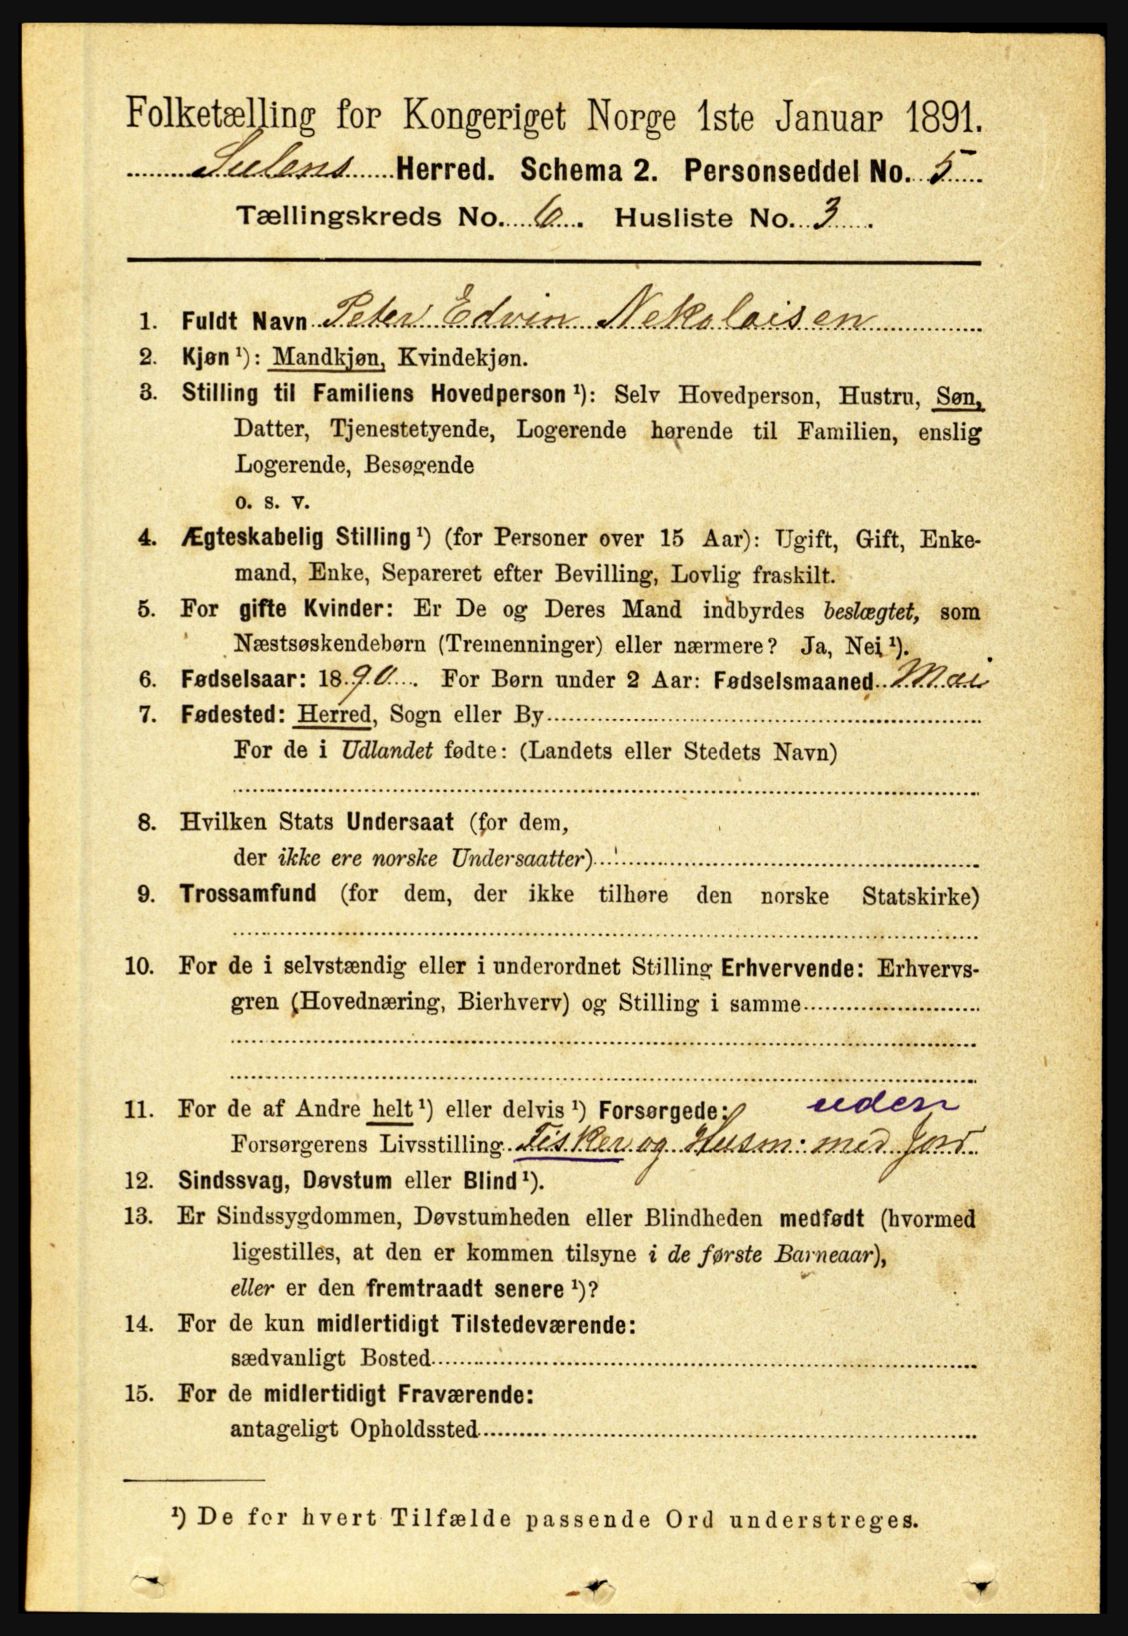 Folketælling for Kongeriget Norge 1ste Januar 1891.
Sulens Herred. Schema 2. Personseddel No. 5
Tællingskreds No. 6. Husliste No. 3.
1. Fuldt Navn Peter Edvin Nekolaisen
2. Kjøn ¹): Mandkjøn, Kvindekjøn.
3. Stilling til Familiens Hovedperson ¹): Selv Hovedperson, Hustru, Søn,
Datter, Tjenestetyende, Logerende hørende til Familien, enslig
Logerende, Besøgende
o. s. v.
4. Ægteskabelig Stilling ¹) (for Personer over 15 Aar): Ugift, Gift, Enke-
mand, Enke, Separeret efter Bevilling, Lovlig fraskilt.
5. For gifte Kvinder: Er De og Deres Mand indbyrdes beslægtet, som
Næstsøskendebørn (Tremenninger) eller nærmere? Ja, Nei ¹).
6. Fødselsaar: 1890. For Børn under 2 Aar: Fødselsmaaned Mai
7. Fødested: Herred, Sogn eller By
For de i Udlandet fødte: (Landets eller Stedets Navn)
8. Hvilken Stats Undersaat (for dem,
der ikke ere norske Undersaatter)
9. Trossamfund (for dem, der ikke tilhøre den norske Statskirke)
10. For de i selvstændig eller i underordnet Stilling Erhvervende: Erhvervs-
gren (Hovednæring, Bierhverv) og Stilling i samme
11. For de af Andre helt ¹) eller delvis ¹) Forsørgede: uden
Forsørgerens Livsstilling Fisker og Husm: med Jord
12. Sindssvag, Døvstum eller Blind ¹).
13. Er Sindssygdommen, Døvstumheden eller Blindheden medfødt (hvormed
ligestilles, at den er kommen tilsyne i de første Barneaar),
eller er den fremtraadt senere ¹)?
14. For de kun midlertidigt Tilstedeværende:
sædvanligt Bosted
15. For de midlertidigt Fraværende:
antageligt Opholdssted
¹) De for hvert Tilfælde passende Ord understreges.